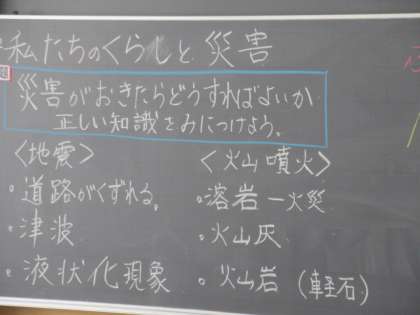 私たちのくらしと 災害
災害がおきたらどうすればよいか
正しい知識をみにつけよう。
〈地震〉
・道路がくずれる。
・津波
・液状化現象
〈火山噴火〉
・溶岩－火災
・火山灰
・火山岩（軽石）